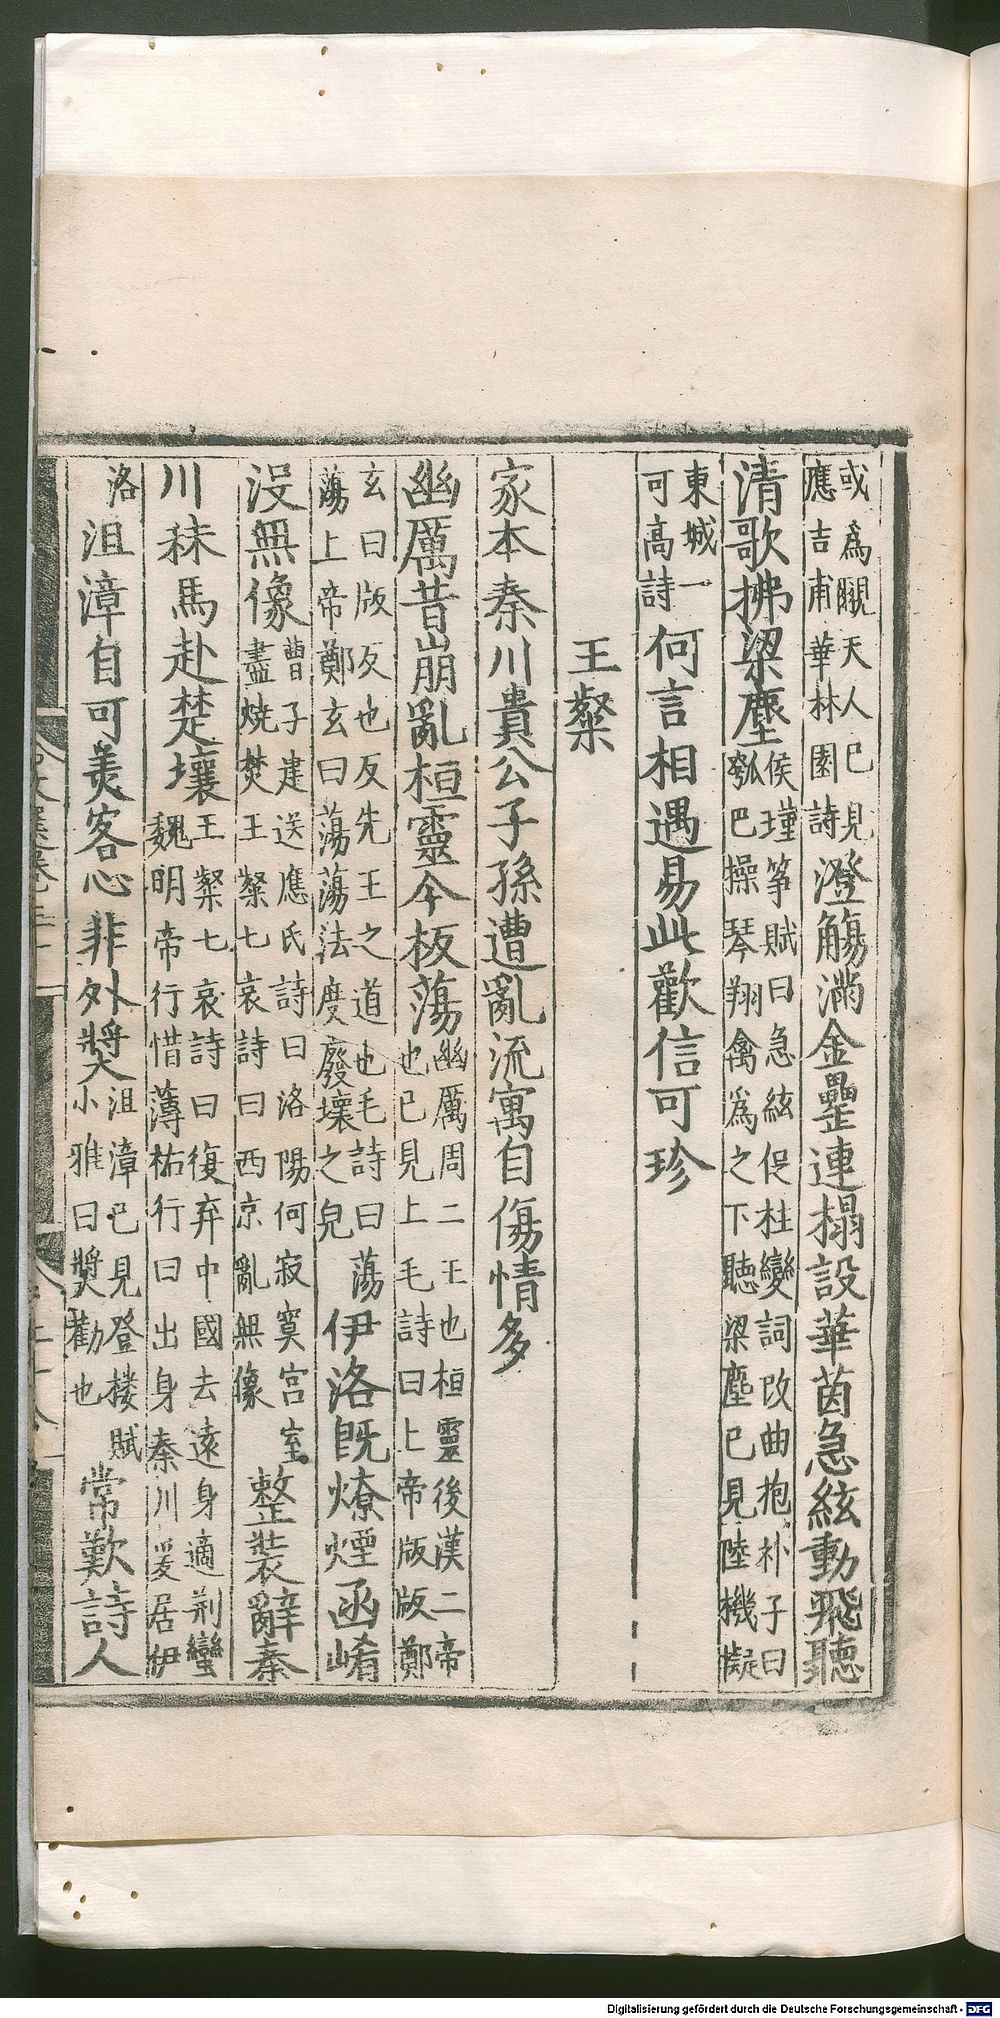 或爲覯天人巳見
應吉甫華林園詩澄觴滿金罍連榻設華茵急絃動飛聽
清歌拂梁塵侯瑾箏賦曰急絃促柱變詞改曲抱朴子曰
瓠巴操琴翔禽爲之下聽梁塵巳見陸機擬
東城一
可高詩何言相遇易此歡信可珍
王粲
家本秦川貴公子孫遭亂流寓自傷情多
幽厲昔崩亂桓靈今板蕩幽厲周二王也桓靈後漢二帝
也巳見上毛詩曰上帝版版鄭
玄曰版反也反先王之道也毛詩曰蕩
蕩上帝鄭玄曰蕩蕩法度廢壞之皃伊洛旣燎煙函崤
沒無像曹子建送應氏詩曰洛陽何寂寞宮室
盡燒焚王粲七哀詩曰西京亂無像整裝辭秦
川秣馬赴楚壤王粲七哀詩曰復弃中國去遠身適荆蠻
魏明帝行惜薄祐行曰出身秦川爰居伊
洛沮漳自可美客心非外奬沮漳巳見登樓賦
小雅曰奬勸也常歎詩人
Digitalisierung gefördert durch die Deutsche Forschungsgemeinschaft - DFG